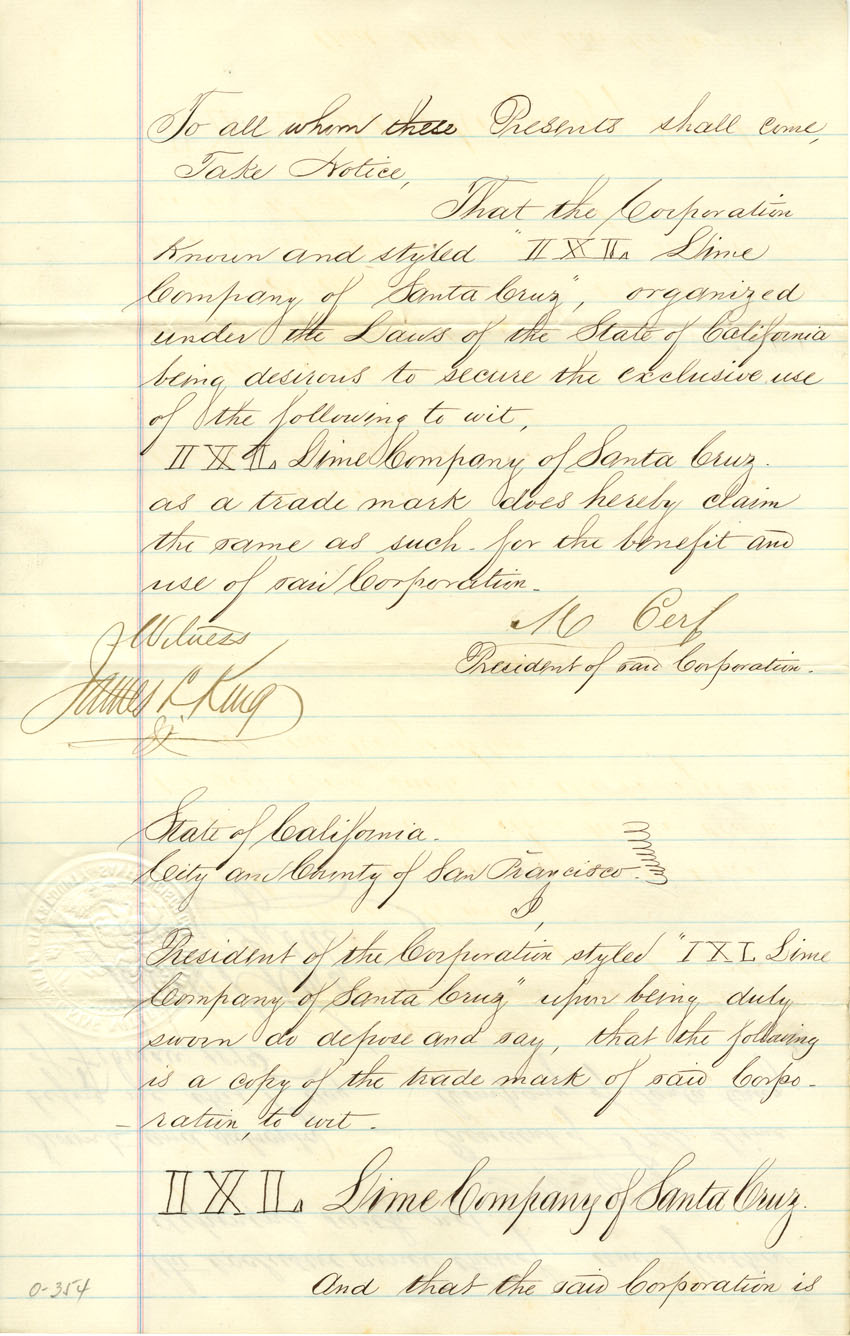 To all whom these Presents shall come,
Take Notice,
That the Corporation
Known and styled "IXL Lime
Company of Santa Cruz", organized
under the Laws of the State of California
being desirous to secure the exclusive use
of the following to wit,
IXL Lime Company of Santa Cruz.
as a trade mark does hereby claim
the same as such for the benefit and
use of said Corporation.
M Cerf
President of said Corporation.
Witness
James L King
State of California.
City and County of San Francisco.
I,
President of the Corporation styled "IXL Lime
Company of Santa Cruz" upon being duly
sworn do depose and say, that the following
is a copy of the trade mark of said Corpo-
-ration, to wit.
IXL Lime Company of Santa Cruz.
And that the said Corporation is
0-354